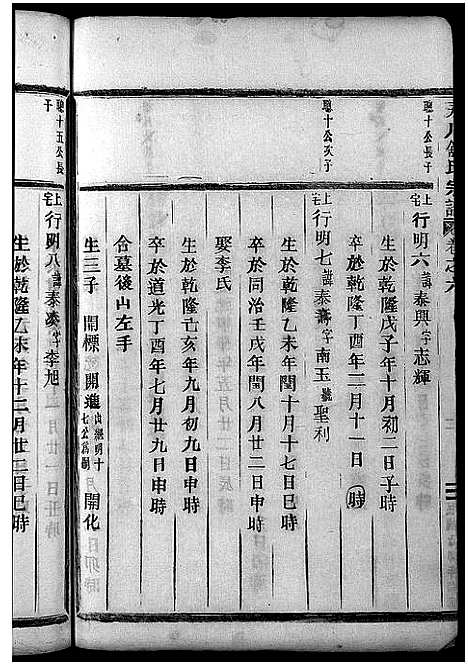 聰十公長子
上宅行明六諱泰興字志輝
生於乾隆戊子年十月初二日子時
卒於乾隆丁酉年二月十一日時
聰十公次子
上宅行明七諱泰壽字南玉號聖利
生於乾隆乙未年閏十月十七日巳時
卒於同治壬戌年閏八月廿二日申時
娶李氏
生於乾隆亥年九月初九日申時
卒於道光丁酉年七月廿九日申時
合墓後山左手
生三子 開標 開進 出繼明十七公為嗣 開化
聰十五公長子
上宅行明八諱泰字李旭
生於乾隆乙未年十二月廿一日巳時